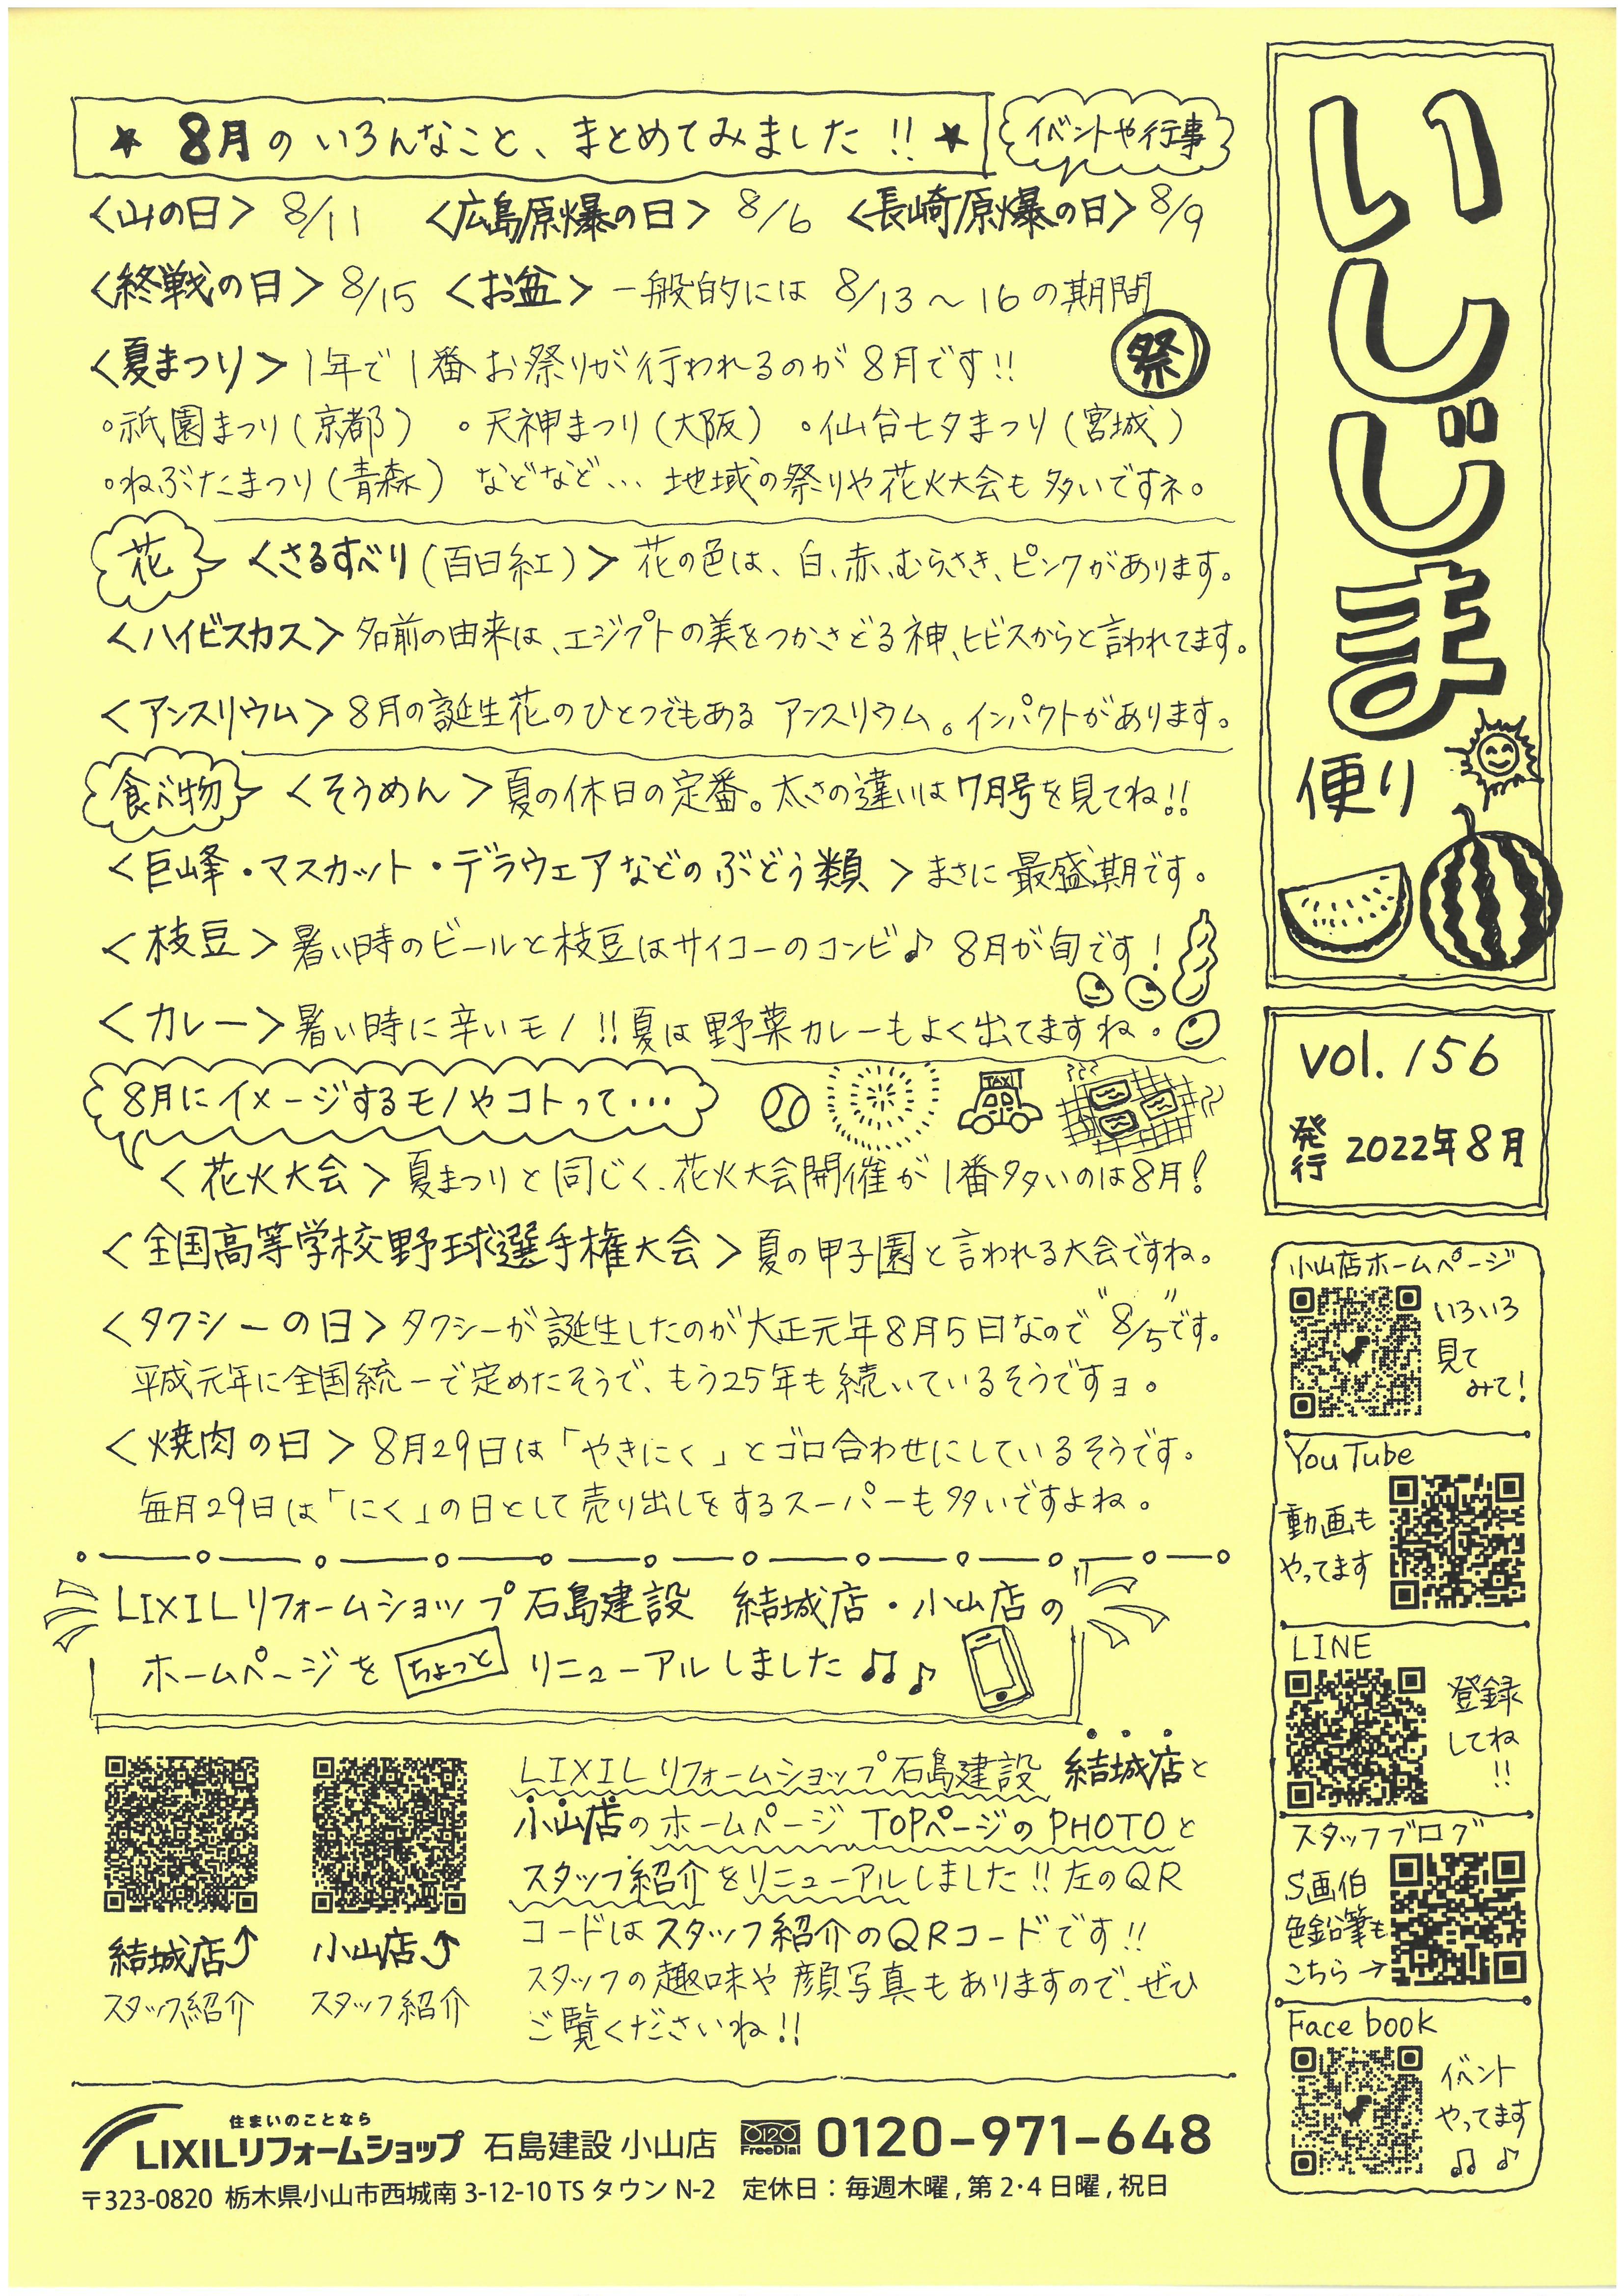 ★ 8月のいろんなこと、まとめてみました!! ★ イベントや行事
<山の日> 8/11 <広島原爆の日> 8/6 <長崎原爆の日> 8/9
<終戦の日> 8/15 <お盆> 一般的には 8/13～16の期間
<夏まつり> 1年で1番お祭りが行われるのが8月です!! 祭
○祇園まつり(京都) ○天神まつり(大阪) ○仙台七夕まつり(宮城)
○ねぶたまつり(青森) などなど… 地域の祭りや花火大会も多いですネ。
花 <さるすべり(百日紅)> 花の色は、白、赤、むらさき、ピンクがあります。
<ハイビスカス> 名前の由来は、エジプトの美をつかさどる神、ヒビスからと言われてます。
<アンスリウム> 8月の誕生花のひとつでもあるアンスリウム。インパクトがあります。
食べ物 <そうめん> 夏の休日の定番。太さの違いは7月号を見てね!!
<巨峰・マスカット・デラウェアなどのぶどう類> まさに最盛期です。
<枝豆> 暑い時のビールと枝豆はサイコーのコンビ♪ 8月が旬です!
<カレー> 暑い時に辛いモノ!!夏は野菜カレーもよく出てますね。
8月にイメージするモノやコトって… TAXI
<花火大会> 夏まつりと同じく、花火大会開催が1番多いのは8月!
<全国高等学校野球選手権大会> 夏の甲子園と言われる大会ですね。
<タクシーの日> タクシーが誕生したのが大正元年8月5日なので"8/5"です。
平成元年に全国統一で定めたそうで、もう25年も続いているそうですョ。
<焼肉の日> 8月29日は「やきにく」とゴロ合わせにしているそうです。
毎月29日は「にく」の日として売り出しをするスーパーも多いですよね。
LIXILリフォームショップ 石島建設 結城店・小山店の
ホームページを ちょっと リニューアルしました♫♪
LIXILリフォームショップ石島建設 結城店と
小山店のホームページ TOPページのPHOTOと
スタッフ紹介をリニューアルしました!! 左のQR
コードはスタッフ紹介のQRコードです!!
スタッフの趣味や顔写真もありますので、ぜひ
ご覧くださいね!!
結城店↑
スタッフ紹介
小山店↑
スタッフ紹介
住まいのことなら
LIXILリフォームショップ 石島建設 小山店 0120 FreeDial 0120-971-648
〒323-0820 栃木県小山市西城南 3-12-10 TS タウン N-2 定休日：毎週木曜,第2・4日曜,祝日
いしじま
便り
vol.156
発行 2022年8月
小山店ホームページ
いろいろ
見て
みて!
YouTube
動画も
やってます
LINE
登録
してね
!!
スタッフブログ
S画伯
色鉛筆も
こちら→
Face book
イベント
やってます
♫ ♪